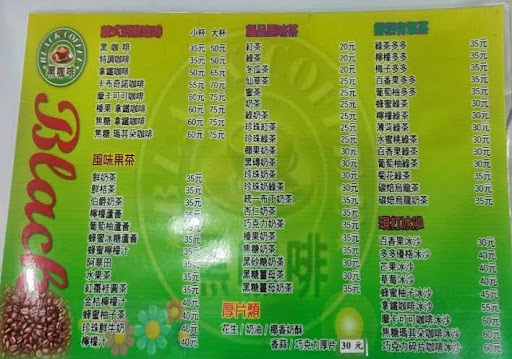 BLACK COFFEE
黑咖啡
Black
小杯 大杯
黑 咖 啡 35元 50元
特調咖啡 35元 50元
拿鐵咖啡 50元 65元
卡布奇諾咖啡 60元 75元
摩卡可可咖啡 60元 75元
榛果 拿鐵咖啡 60元 75元
焦糖 拿鐵咖啡 60元 75元
焦糖 瑪其朵咖啡 60元 75元
風味果茶
鮮奶茶 35元
鮮桔茶 35元
伯爵奶茶 35元
檸檬蘆薈 35元
葡萄柚蘆薈 35元
蜂蜜冰糖蘆薈 35元
蜂蜜檸檬汁 35元
阿華田 35元
水果茶 35元
紅棗桂圓茶 35元
金桔檸檬汁 40元
蜂蜜柚子茶 40元
珍珠鮮牛奶 40元
檸檬汁 40元
紅茶 20元
綠茶 20元
冬瓜茶 20元
仙草茶
蜜茶
奶茶
綠奶茶
珍珠紅茶
珍珠綠茶
椰果奶茶
黑磚奶茶
珍珠奶茶
珍珠奶綠茶
統一布丁奶茶
杏仁奶茶 35元
巧克力奶茶 35元
榛果奶茶 35元
焦糖奶茶 35元
黑砂糖奶茶 35元
黑糖薑母茶 30元
黑糖薑母奶茶 35元
厚片類
花生 / 奶油 / 椰香奶酥
香蒜 / 巧克力厚片 30 元
綠茶多多 35元
檸檬多多 35元
梅子多多 35元
百香果多多 35元
葡萄柚多多 35元
蜂蜜綠茶 30元
檸檬綠茶 30元
薄荷綠茶 30元
水蜜桃綠茶 30元
百香果綠茶 30元
葡萄柚綠茶 30元
菊花綠茶 35元
碳焙烏龍茶 30元
碳焙烏龍奶茶 35元
現打冰沙
百香果冰沙 30元
多多優格冰沙 40元
芒果冰沙 40元
草莓冰沙 40元
蜂蜜柚子冰沙 45元
拿鐵咖啡冰沙 55元
摩卡可可咖啡冰沙 60元
焦糖瑪其朵咖啡冰沙 60元
巧克力碎片咖啡冰沙 60元